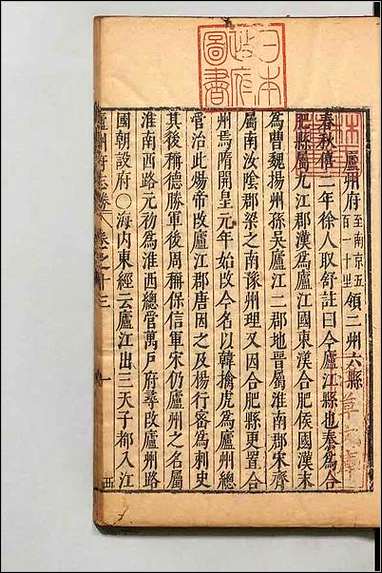 日本
政府
圖書
廬州府 至南京五
百一十里 領二州六縣
春秋僖三年徐人取舒註曰今廬江縣也秦為合
肥縣屬九江郡漢為廬江國東漢合肥侯國漢末
為曹魏揚州孫吳廬江二郡地晉屬淮南郡宋齊
屬南汝陰郡梁之南豫州理又因合肥縣更置合
州焉隋開皇元年始改今名以韓擒虎為廬州總
管治此煬帝改廬江郡唐因之及揚行密為刺史
其後稱德勝軍後周稱保信軍宋仍廬州之名屬
淮南西路元初為淮西總管萬戶府尋改廬州路
國朝設府○海内東經云廬江出三天子都入江
卷之十三 一